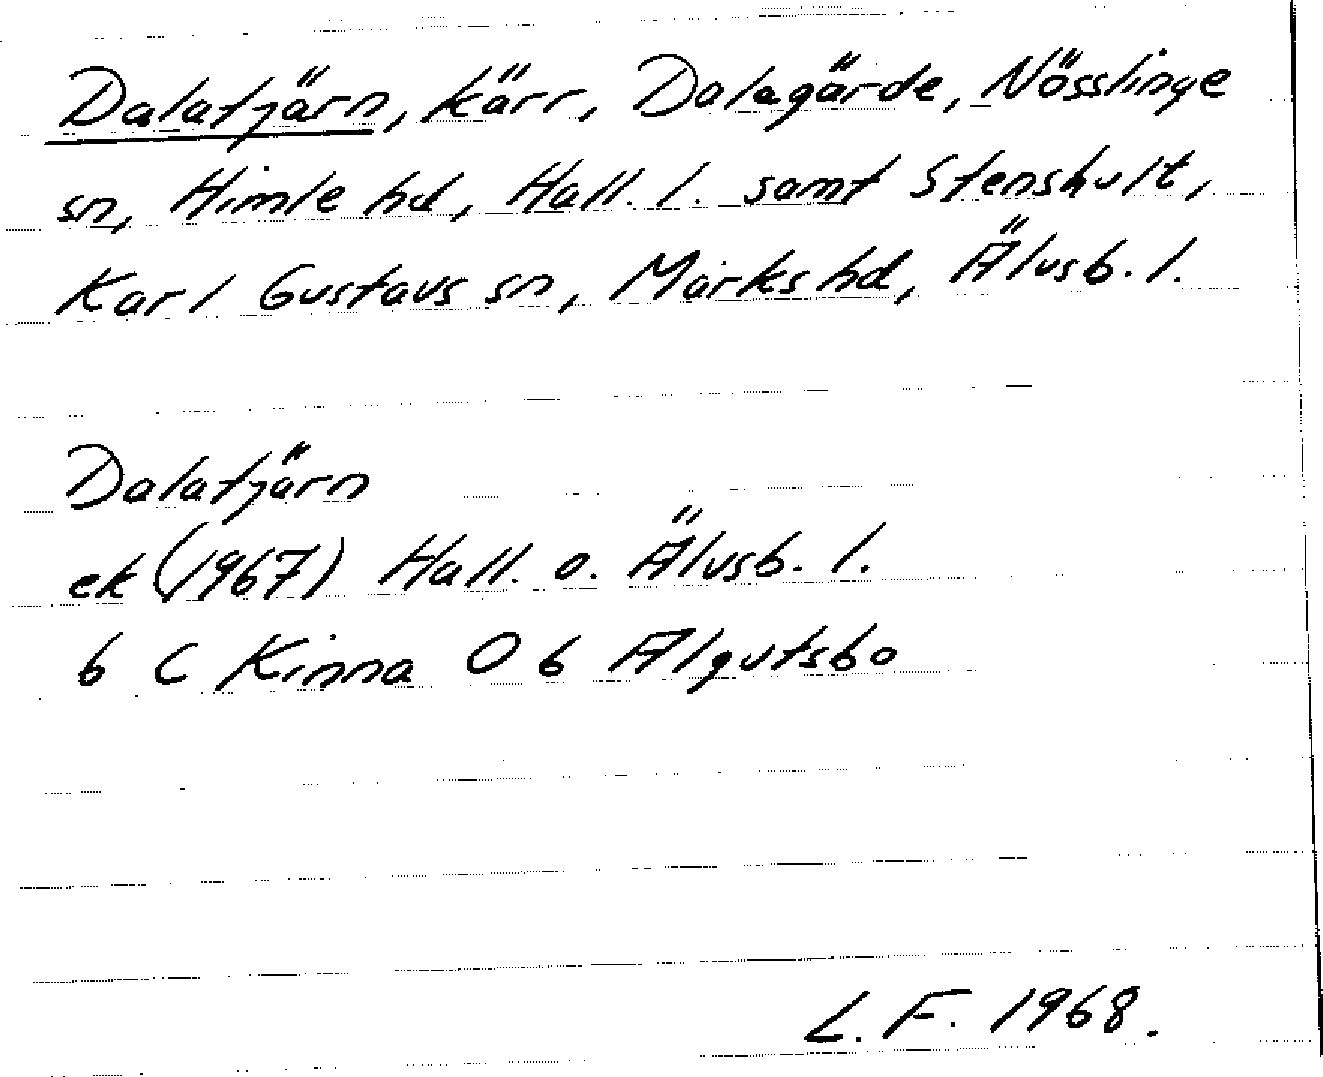 Dalatjärn, kärr, Dalagärde, Nösslinge
sn, Himle hd, Hall. l. samt Stenshult,
Karl Gustavs sn, Marks hd, Älvsb. l.
Dalatjärn
ek (1967) Hall. o. Älvsb. l.
6 C Kinna 0 6 Älgutsbo
L. F. 1968.